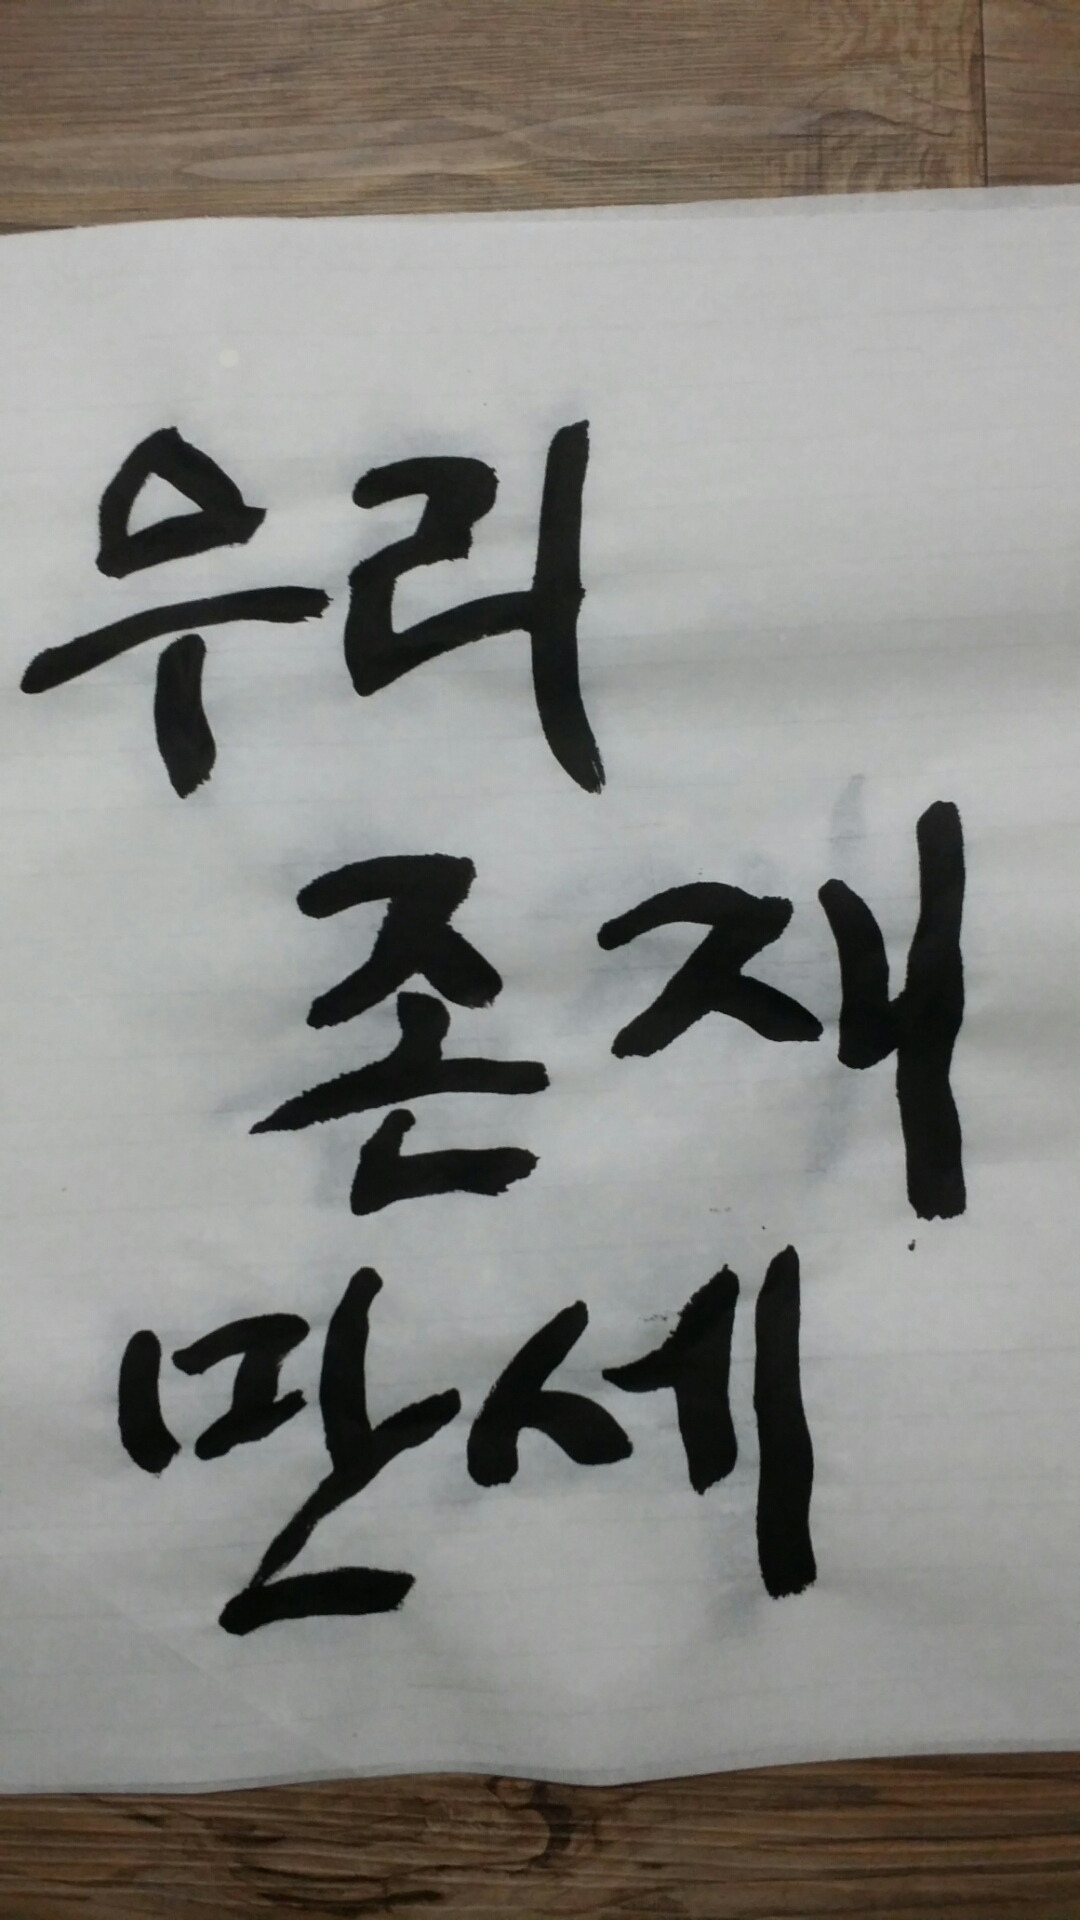 우리
존재
만세